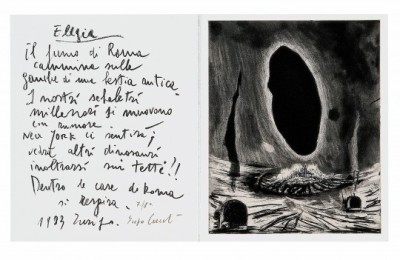 Elegia
il fiume di Roma
cammina sulle
gambe di una bestia antica
I nostri scheletri
millenari si muovono
con rumore.
New York ci sentirà;
vedrà altri dinosauri
inoltrarsi sui tetti!!
Dentro le case di Roma
si respira.
1993